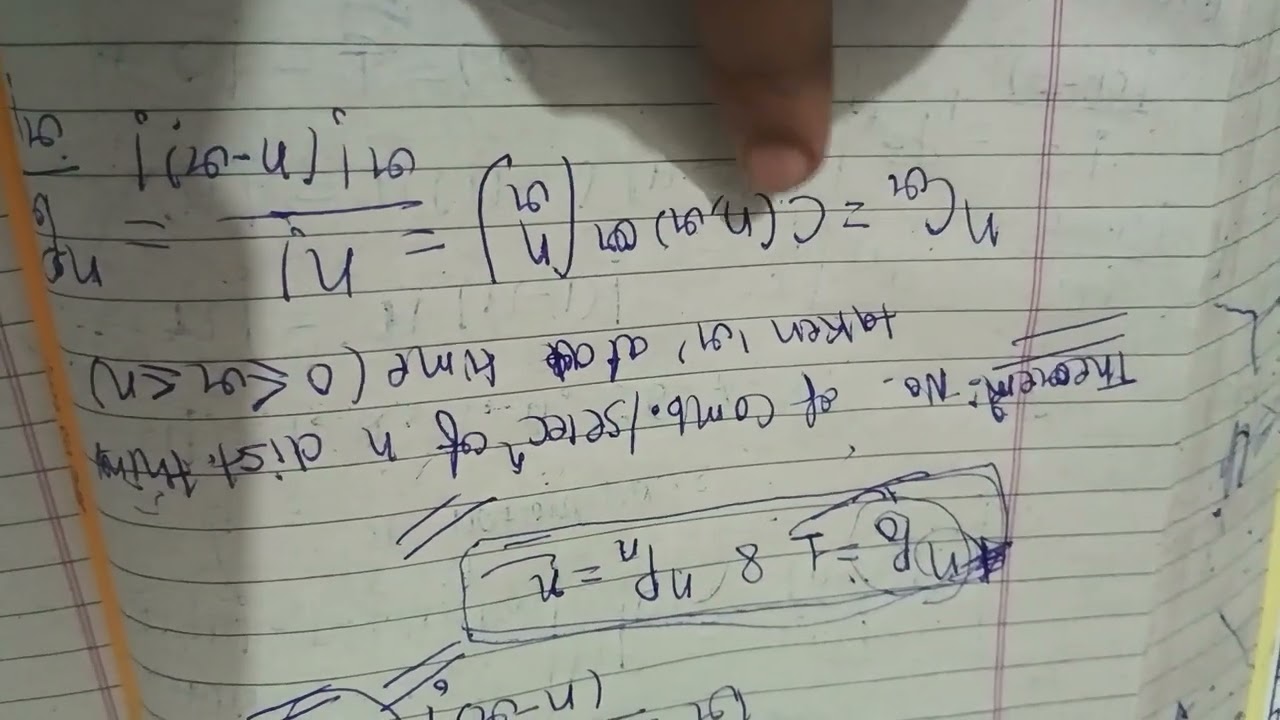 (n-r)!
nP₀ = 1 & nPₙ = n
Theorem: No. of comb./selecⁿ of n dist. thin
taken 'r' at a time (0 ≤ r ≤ n)
nCr = C(n,r) or (n r) = n! / r! (n-r)! = nP / r!